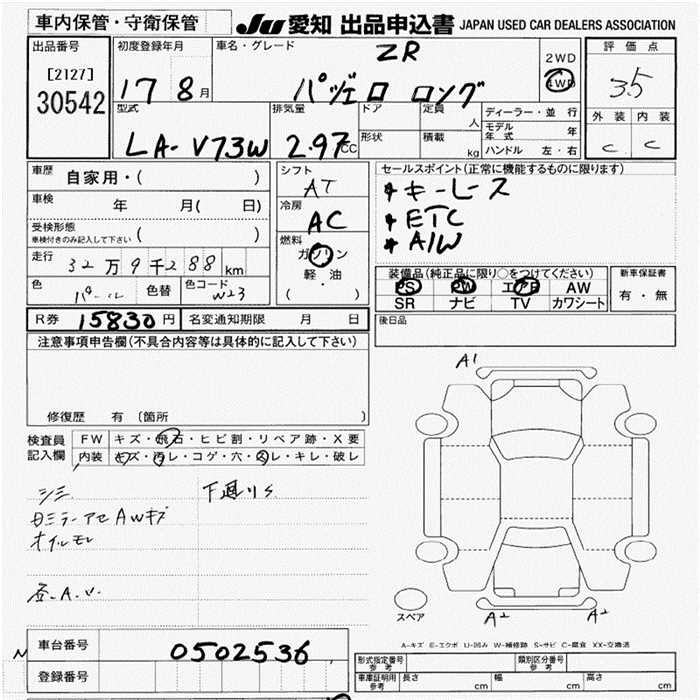 車内保管・守衛保管
JU 愛知 出品申込書 JAPAN USED CAR DEALERS ASSOCIATION
出品番号
[2127]
30542
初度登録年月
17 8月
車名・グレード
ZR
パジェロ ロング
2WD
4WD
評価点
3.5
外装 内装
C C
型式
LA-V73W
排気量
2.97CC
ドア
形状
定員
人
積載
kg
ディーラー・並行
モデル年式 年
ハンドル 左・右
車歴 自家用・( )
車検 年 月( 日)
受検形態
車検付きのみ記入して下さい ( )
走行 32万9千288km
色 パール 色替 色コード W23
シフト
AT
冷房
AC
燃料
ガソリン
軽・油
( )
セールスポイント(正常に機能するものに限ります)
キーレス
ETC
A/W
装備品(純正品に限り○をつけてください)
PS PW エアB AW
SR ナビ TV カワシート
新車保証書
有・無
R券 15830円 名変通知期限 月 日
後日品
注意事項申告欄(不具合内容等は具体的に記入して下さい)
修復歴 有 〔箇所 〕
検査員記入欄
FW キズ・飛石・ヒビ割・リペア跡・X要
内装 キズ・汚レ・コゲ・穴・スレ・キレ・破レ
シミ
AWキズ
オイルモレ
下廻りS
A1
スペア
A2 A2
A-キズ E-エクボ U-凹み W-補修跡 S-サビ C-腐食 XX-交換済
車台番号 0502536
登録番号
型式指定番号 参考
類別区分番号 参考
車庫証明用 参考 長さ cm 幅 cm 高さ cm